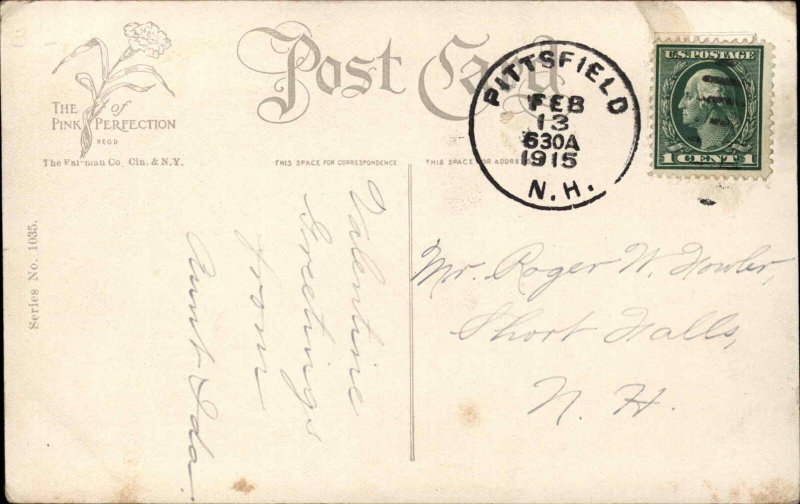 THE of
PINK PERFECTION
REGD
The Fairman Co, Cin. & N.Y.
Series No. 1035.
Post Card
THIS SPACE FOR CORRESPONDENCE
THIS SPACE FOR ADDRESS
PITTSFIELD
FEB
13
630A
1915
N.H.
U.S. POSTAGE
1 CENT 1
Valentine
Greetings
from
Aunt Ida
Mr. Roger W. Fowler,
Short Falls,
N. H.